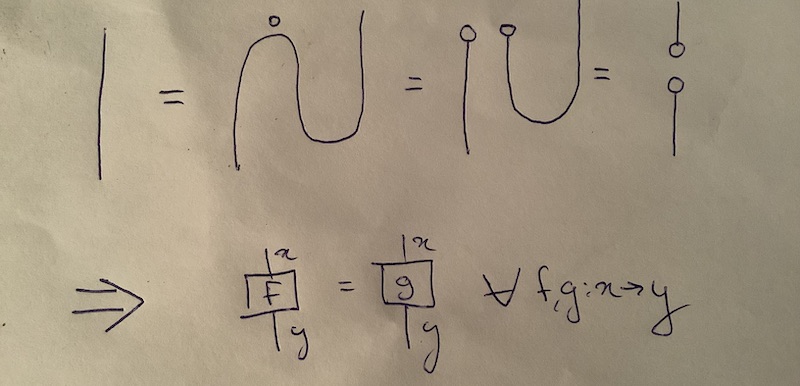 = = =
⇒ x F y = x g y ∀ f,g:x→y